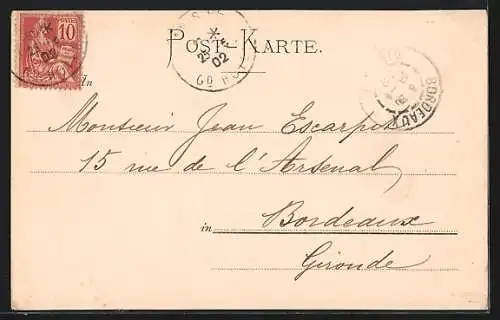 10
POST KARTE.
02
BORDEAUX
In
Monsieur Jean Escarpit
15 rue de l'Arsenal
in Bordeaux
Gironde